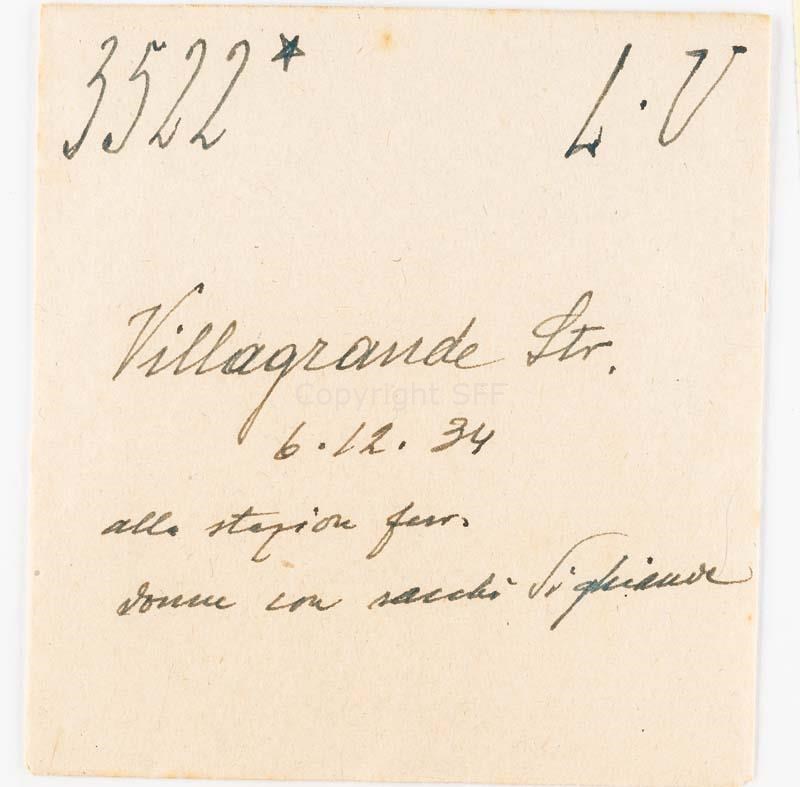 3522* L.V
Villagrande Str.
Copyright SFF
6.12.34
alla stazion ferr.
donne con sacchi di ghiande